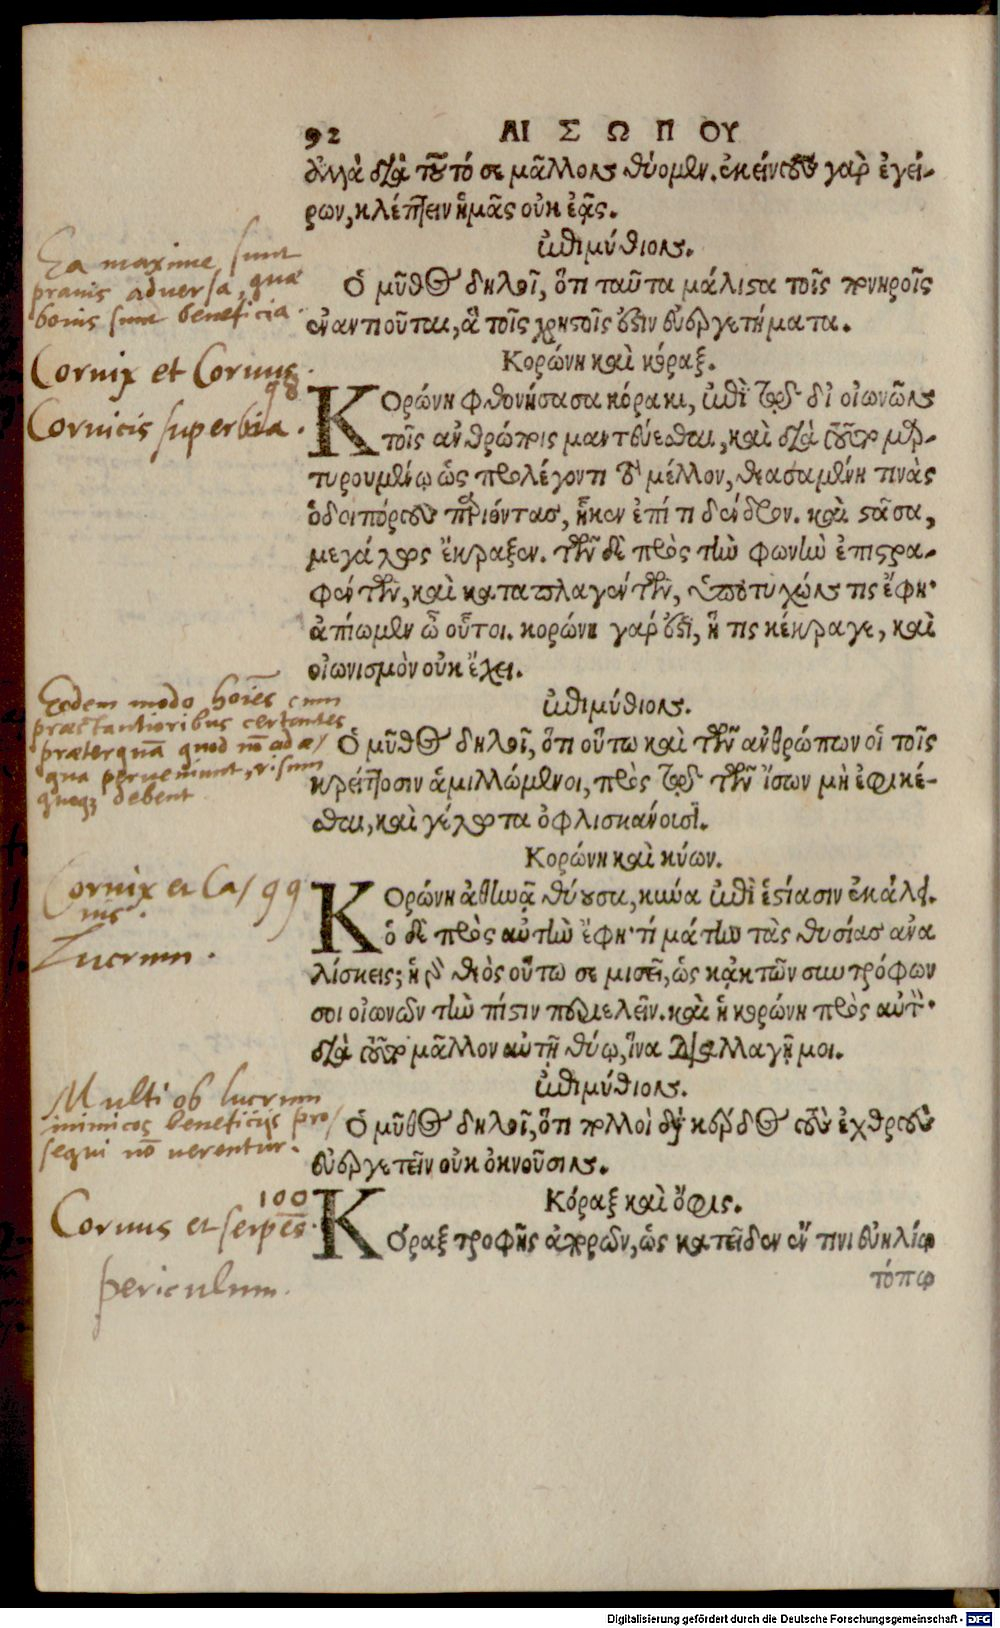 92 ΑΙΣΩΠΟΥ
ἀλλὰ διὰ τοῦτό σε μᾶλλον θύομεν. ἐκείνους γὰρ ἐγεί-
ρων, κλέπτειν ἡμᾶς οὐκ ἐᾷς.
ἐπιμύθιον.
Ὁ μῦθος δηλοῖ, ὅτι ταῦτα μάλιστα τοῖς πονηροῖς
ἐναντιοῦται, ἃ τοῖς χρηστοῖς ἐστὶν εὐεργετήματα.
Κορώνη καὶ κόραξ.
ΚΟρώνη φθονήσασα κόρακι, ἐπὶ τῷ δι' οἰωνῶν
τοῖς ἀνθρώποις μαντεύεσθαι, καὶ διὰ τοῦτο μαρ-
τυρουμένῳ ὡς προλέγοντι τὸ μέλλον, θεασαμένη τινὰς
ὁδοιπόρους παριόντας, ἧκεν ἐπί τι δένδρον. καὶ στᾶσα,
μεγάλως ἔκραξεν. τῶν δὲ πρὸς τὴν φωνὴν ἐπιστρα-
φέντων, καὶ καταπλαγέντων, ὑποτυχών τις ἔφη·
ἀπίωμεν ὦ οὗτοι. κορώνη γάρ ἐστι, ἥ τις κέκραγε, καὶ
οἰωνισμὸν οὐκ ἔχει.
ἐπιμύθιον.
Ὁ μῦθος δηλοῖ, ὅτι οὕτω καὶ τῶν ἀνθρώπων οἱ τοῖς
κρείττοσιν ἁμιλλώμενοι, πρὸς τῷ τῶν ἴσων μὴ ἐφικέ-
σθαι, καὶ γέλωτα ὀφλισκάνουσι.
Κορώνη καὶ κύων.
ΚΟρώνη ἀθηνᾷ θύουσα, κύνα ἐπὶ ἑστίασιν ἐκάλει.
ὁ δὲ πρὸς αὐτὴν ἔφη· τί μάτην τὰς θυσίας ἀνα
λίσκεις; ἡ γὰρ θεὸς οὕτω σε μισεῖ, ὡς κᾀκ τῶν συντρόφων
σοι οἰωνῶν τὴν πίστιν περιελεῖν. καὶ ἡ κορώνη πρὸς αὐτόν·
διὰ τοῦτο μᾶλλον αὐτῇ θύω, ἵνα διαλλαγῇ μοι.
ἐπιμύθιον.
Ὁ μῦθος δηλοῖ, ὅτι πολλοὶ διὰ κέρδος τοὺς ἐχθροὺς
εὐεργετεῖν οὐκ ὀκνοῦσιν.
Κόραξ καὶ ὄφις.
ΚΟραξ τροφῆς ἀπορῶν, ὡς κατεῖδεν ἔν τινι εὐηλίῳ
τόπῳ
Ea maxime sunt
pravis adversa, quæ
bonis sunt beneficia.
Cornix et Corvus.
98
Cornicis superbia.
Eodem modo hoīes cum
præstantioribus certantes
præterquā quod nō ad æ/
qua perveniunt, risum
quoqȝ debent
Cornix et Ca/ 99
nis.
Lucrum.
Multi ob lucrum
inimicos beneficijs pro/
sequi nō verentur.
100
Corvus et serpēs.
periculum.
Digitalisierung gefördert durch die Deutsche Forschungsgemeinschaft - DFG